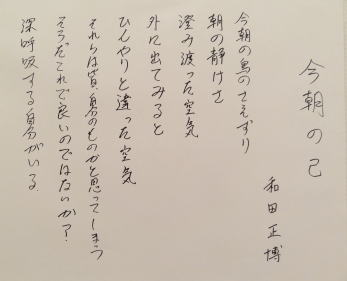 今朝の己
和田正博
今朝の鳥のさえずり
朝の静けさ
澄み渡った空気
外に出てみると
ひんやりと違った空気
それらは皆、自分のものかと思ってしまう
そうだこれで良いのではないか?
深呼吸する自分がいる